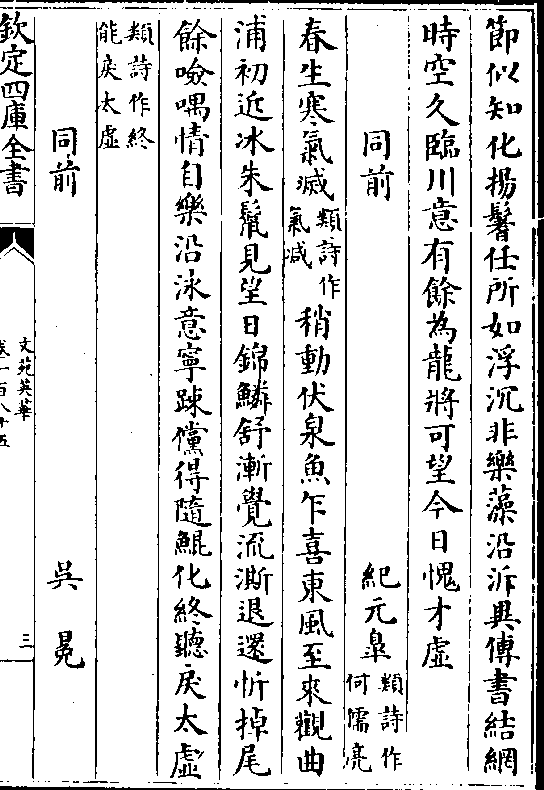 節似知化揚鬐任所如浮沉非樂藻沿泝異傅書結網
時空久臨川意有餘為龍將可望今日愧才虛
同前 紀元臯類詩作何儒亮
春生寒氣滅類詩作氣減稍動伏泉魚乍喜東風至來觀曲
浦初近冰朱鬛見望日錦鱗舒漸覺流澌退還忻掉尾
餘噞喁情自樂沿泳意寧踈儻得隨鯤化終聽戾太虛
類詩作終能戾太虛
同前 吳冕
欽定四庫全書
文苑英華
卷一百八十五
三